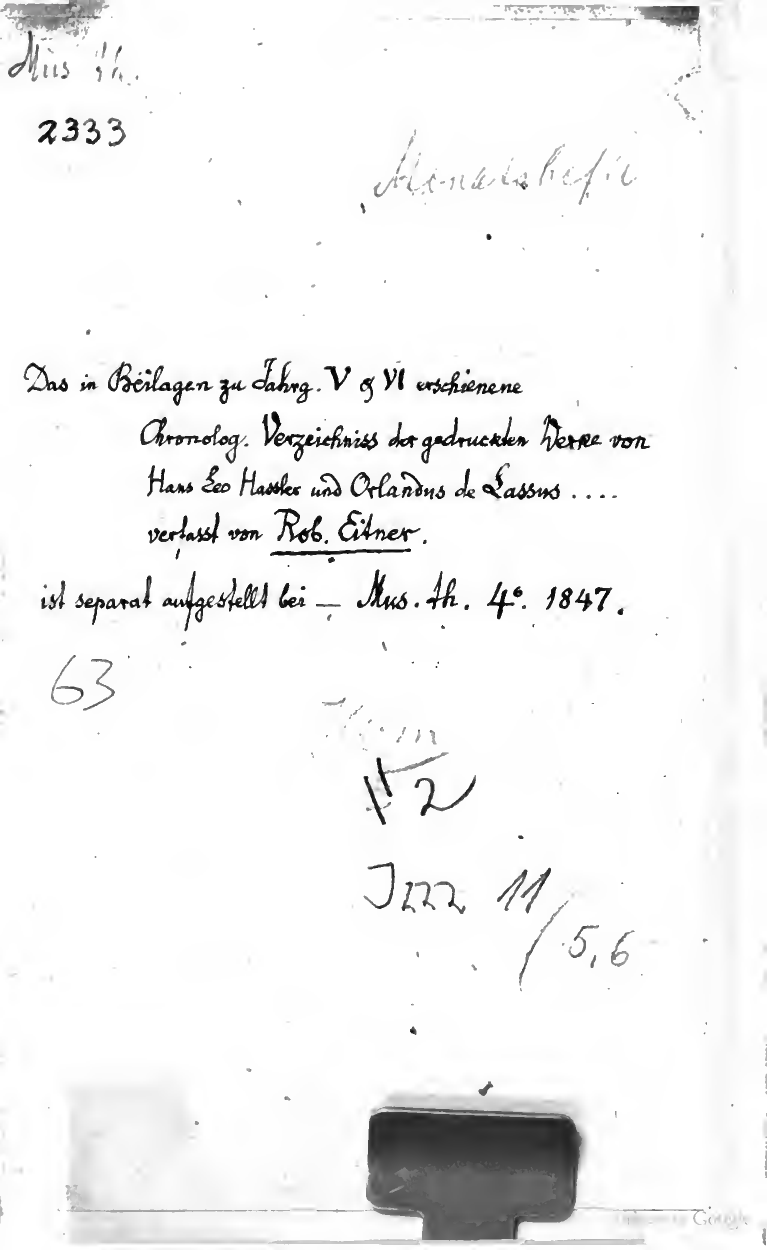 Mus. th.
2333
Monatshefte
Das in Beilagen zu Jahrg. V & VI erschienene
Chronolog. Verzeichniss der gedruckten Werke von
Hans Leo Hassler und Orlandus de Lassus ....
verfasst von Rob. Eitner.
ist separat aufgestellt bei — Mus. th. 4°. 1847.
63
2
11
/ 5,6
Google